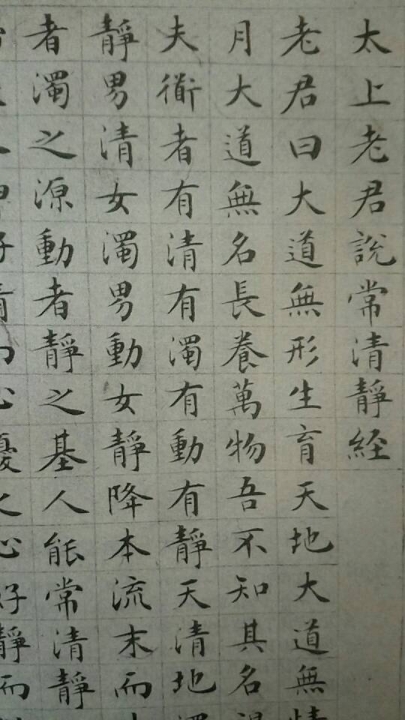 太上老君說常清靜経
老君曰大道無形生育天地大道無情
月大道無名長養萬物吾不知其名
夫衜者有清有濁有動有靜天清地
靜男清女濁男動女靜降本流末而
者濁之源動者靜之基人能常清靜
心好靜而